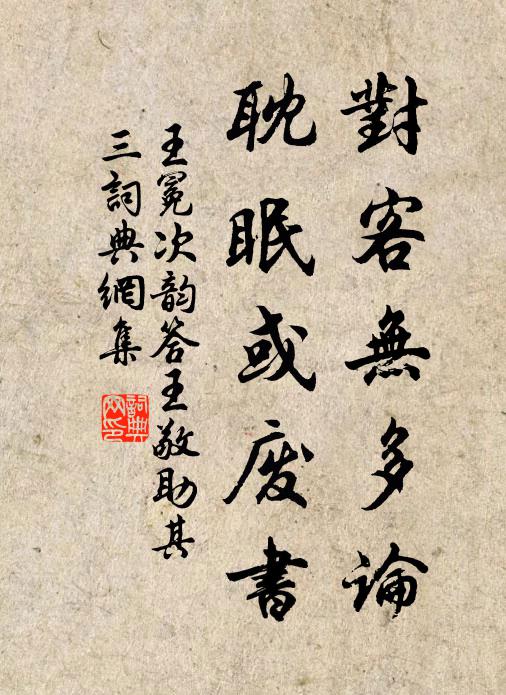 對客無多論
耽眠或废書
王冕次韵答王敬助其
三詞典網集
詞典網印